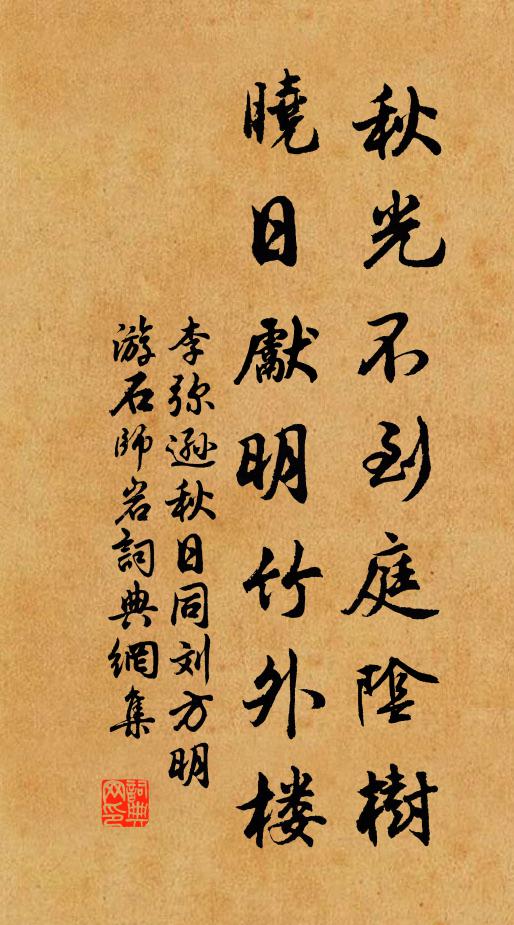 秋光不到庭陰樹
曉日獻明竹外楼
李弥逊秋日同刘方明
游石師岩詞典網集
詞典
网印